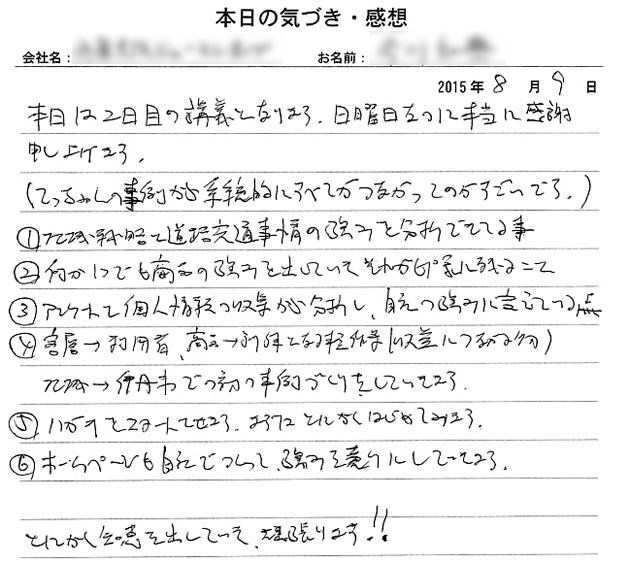 本日の気づき・感想
会社名： お名前：
2015年 8 月 9 日
本日は2日目の講義となります。日曜日なのに本当に感謝
申し上げます。
(てっちゃんの事例が系統的にすべてがつながってのがすごいです。)
① 戦略と道路交通事情の強みを分析できてる事
② 何か1つでも商品の強みを出していって それが に残ること
③ アンケートで個人情報の収集が分析し、自社の強みに している点
④ 客層→利用者、商品→ となる軽作業(収益につながる物)
→伊丹市での初の事例づくりをしていきます。
⑤ ハガキでスタートさせます。まずはとにかくはじめてみます。
⑥ ホームページも自社でつくって、強みを売りにしていきます。
とにかく知恵を出していき、頑張ります!!